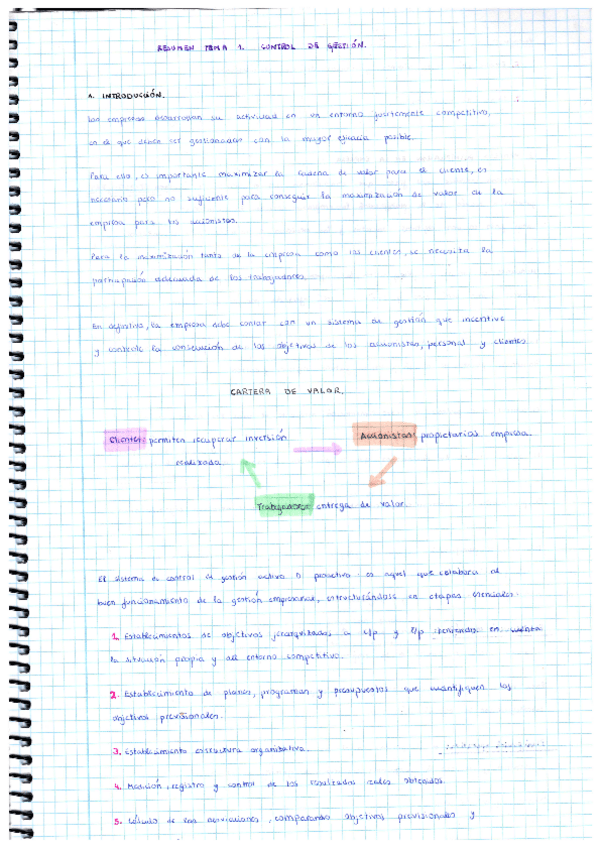 RESUMEN TEMA 1. CONTROL DE GESTIÓN.
1. INTRODUCCIÓN.
Las empresas desarrollan su actividad en un entorno fuertemente competitivo,
en el que deben ser gestionadas con la mayor eficacia posible.
Para ello, es importante maximizar la cadena de valor para el cliente, es
necesario pero no suficiente para conseguir la maximización de valor de la
empresa para los accionistas.
Para la maximización tanto de la empresa como los clientes, se necesita la
participación adecuada de los trabajadores.
En definitiva, la empresa debe contar con un sistema de gestión que incentive
y controle la consecución de los objetivos de los accionistas, personal y clientes.
CARTERA DE VALOR.
Clientes: permiten recuperar inversión
realizada.
Accionistas: propietarios empresa.
Trabajadores: entrega de valor.
El sistema de control de gestión activo o proactivo es aquel que colabora al
buen funcionamiento de la gestión empresarial, estructurándose en etapas esenciales.
1. Establecimientos de objetivos jerarquizados a c/p y l/p teniendo en cuenta
la situación propia y del entorno competitivo.
2. Establecimiento de planes, programas y presupuestos que cuantifiquen los
objetivos previsionales.
3. Establecimiento estructura organizativa.
4. Medición, registro y control de los resultados reales obtenidos.
5. Cálculo de las desviaciones, comparando objetivos previsionales y